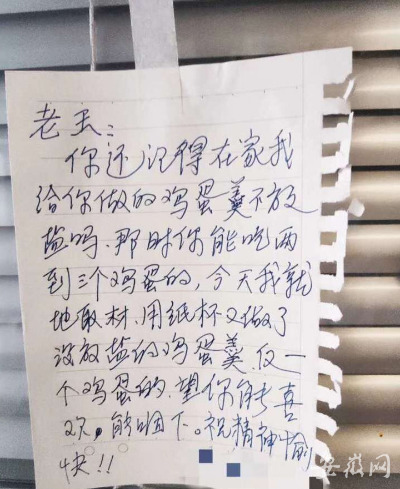 老王:
你还记得在家我
给你做的鸡蛋羹不放
盐吗.那时你能吃两
到三个鸡蛋的,今天我就
地取材.用纸杯又做了
没放盐的鸡蛋羹.仅一
个鸡蛋的.望你能喜
欢,能咽下。祝精神愉
快!!
安徽网